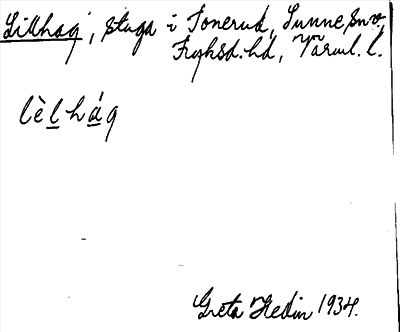 Lillhag, stuga i Tonerud, Sunne sn
Fryksd. hd, Värml. l.
lèlhág
Greta Hedin 1934.